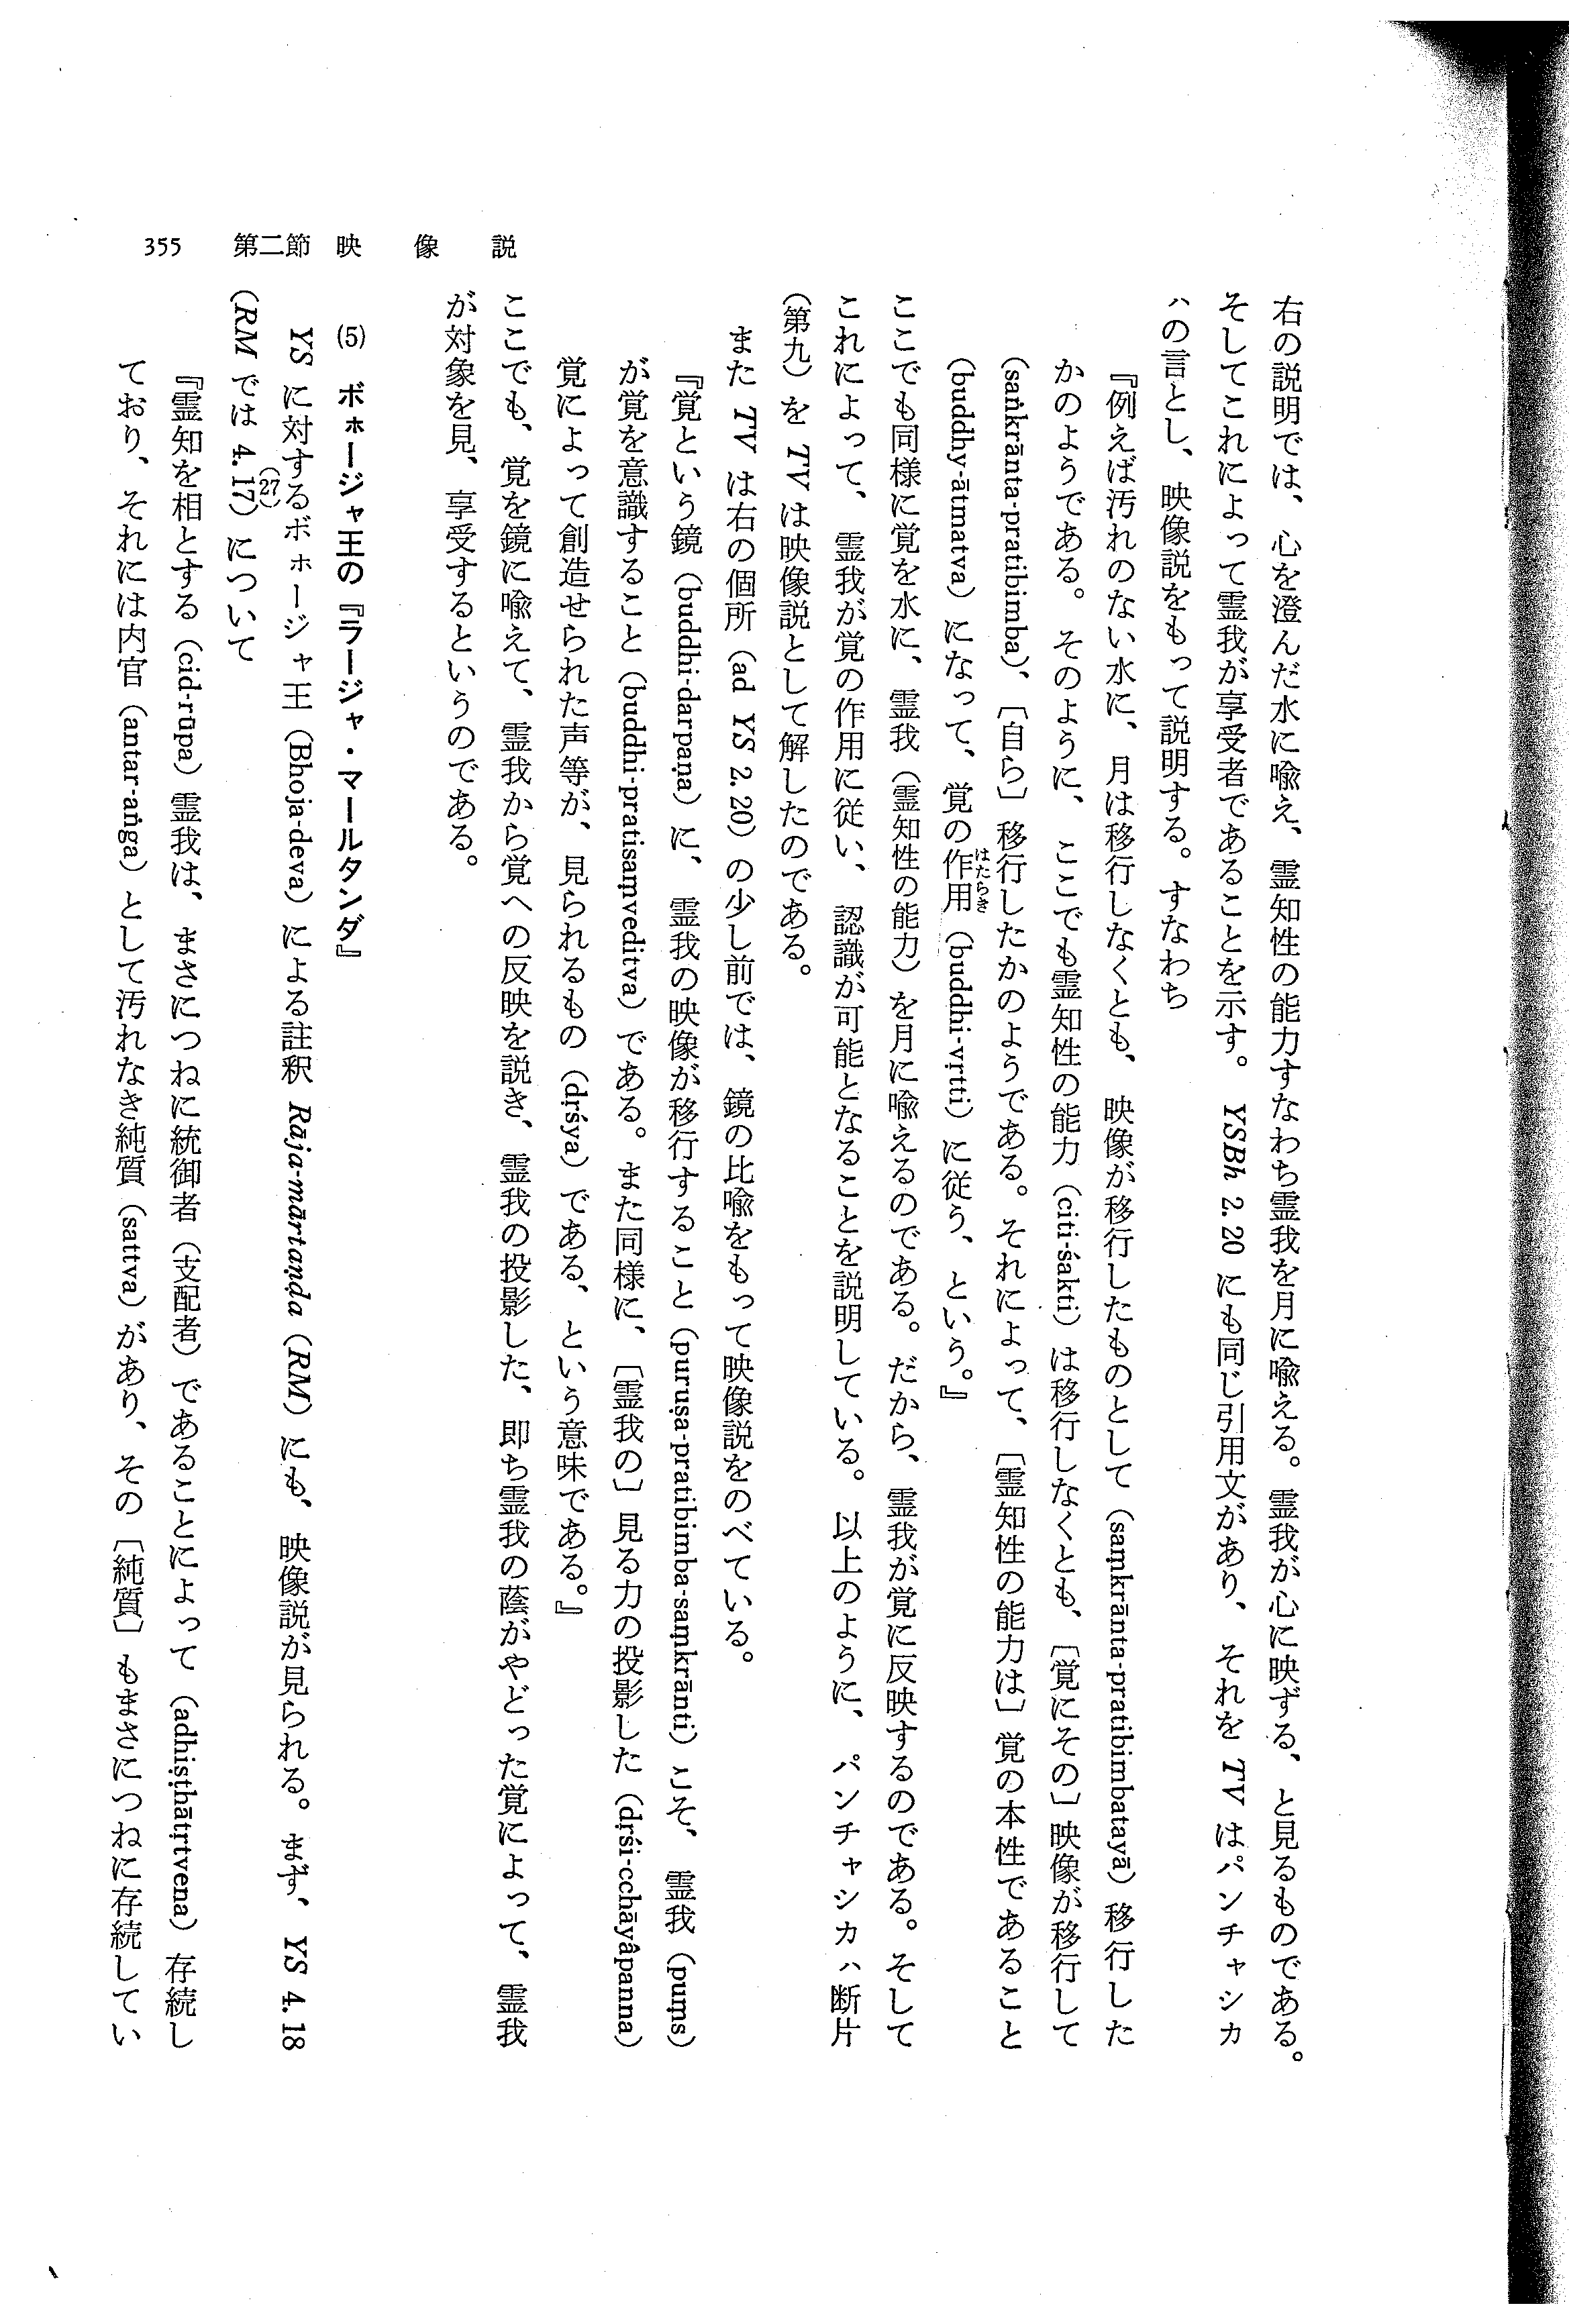 355　第二節　映　像　説
右の説明では、心を澄んだ水に喩え、霊知性の能力すなわち霊我を月に喩える。霊我が心に映ずる、と見るものである。
そしてこれによって霊我が享受者であることを示す。YSBh 2.20 にも同じ引用文があり、それを TV はパンチャシカ
ハの言とし、映像説をもって説明する。すなわち
『例えば汚れのない水に、月は移行しなくとも、映像が移行したものとして（saṃkrānta-pratibimbatayā）移行した
かのようである。そのように、ここでも霊知性の能力（citi-śakti）は移行しなくとも、〔覚にその〕映像が移行して
（saṅkrānta-pratibimba）、〔自ら〕移行したかのようである。それによって、〔霊知性の能力は〕覚の本性であること
（buddhy-ātmatva）になって、覚の作用はたらき（buddhi-vṛtti）に従う、という。』
ここでも同様に覚を水に、霊我（霊知性の能力）を月に喩えるのである。だから、霊我が覚に反映するのである。そして
これによって、霊我が覚の作用に従い、認識が可能となることを説明している。以上のように、パンチャシカハ断片
（第九）を TV は映像説として解したのである。
また TV は右の個所（ad YS 2.20）の少し前では、鏡の比喩をもって映像説をのべている。
『覚という鏡（buddhi-darpaṇa）に、霊我の映像が移行すること（puruṣa-pratibimba-saṃkrānti）こそ、霊我（puṃs）
が覚を意識すること（buddhi-pratisaṃveditva）である。また同様に、〔霊我の〕見る力の投影した（dṛśi-cchāyâpanna）
覚によって創造せられた声等が、見られるもの（dṛśya）である、という意味である。』
ここでも、覚を鏡に喩えて、霊我から覚への反映を説き、霊我の投影した、即ち霊我の蔭がやどった覚によって、霊我
が対象を見、享受するというのである。
(5)　ボホージャ王の『ラージャ・マールタンダ』
YS に対するボホージャ王（Bhoja-deva）による註釈 Rāja-mārtaṇḍa（RM）にも、映像説が見られる。まず、YS 4.18
（RM では 4.17）(27)について
『霊知を相とする（cid-rūpa）霊我は、まさにつねに統御者（支配者）であることによって（adhiṣṭhātṛtvena）存続し
ており、それには内官（antar-aṅga）として汚れなき純質（sattva）があり、その〔純質〕もまさにつねに存続してい